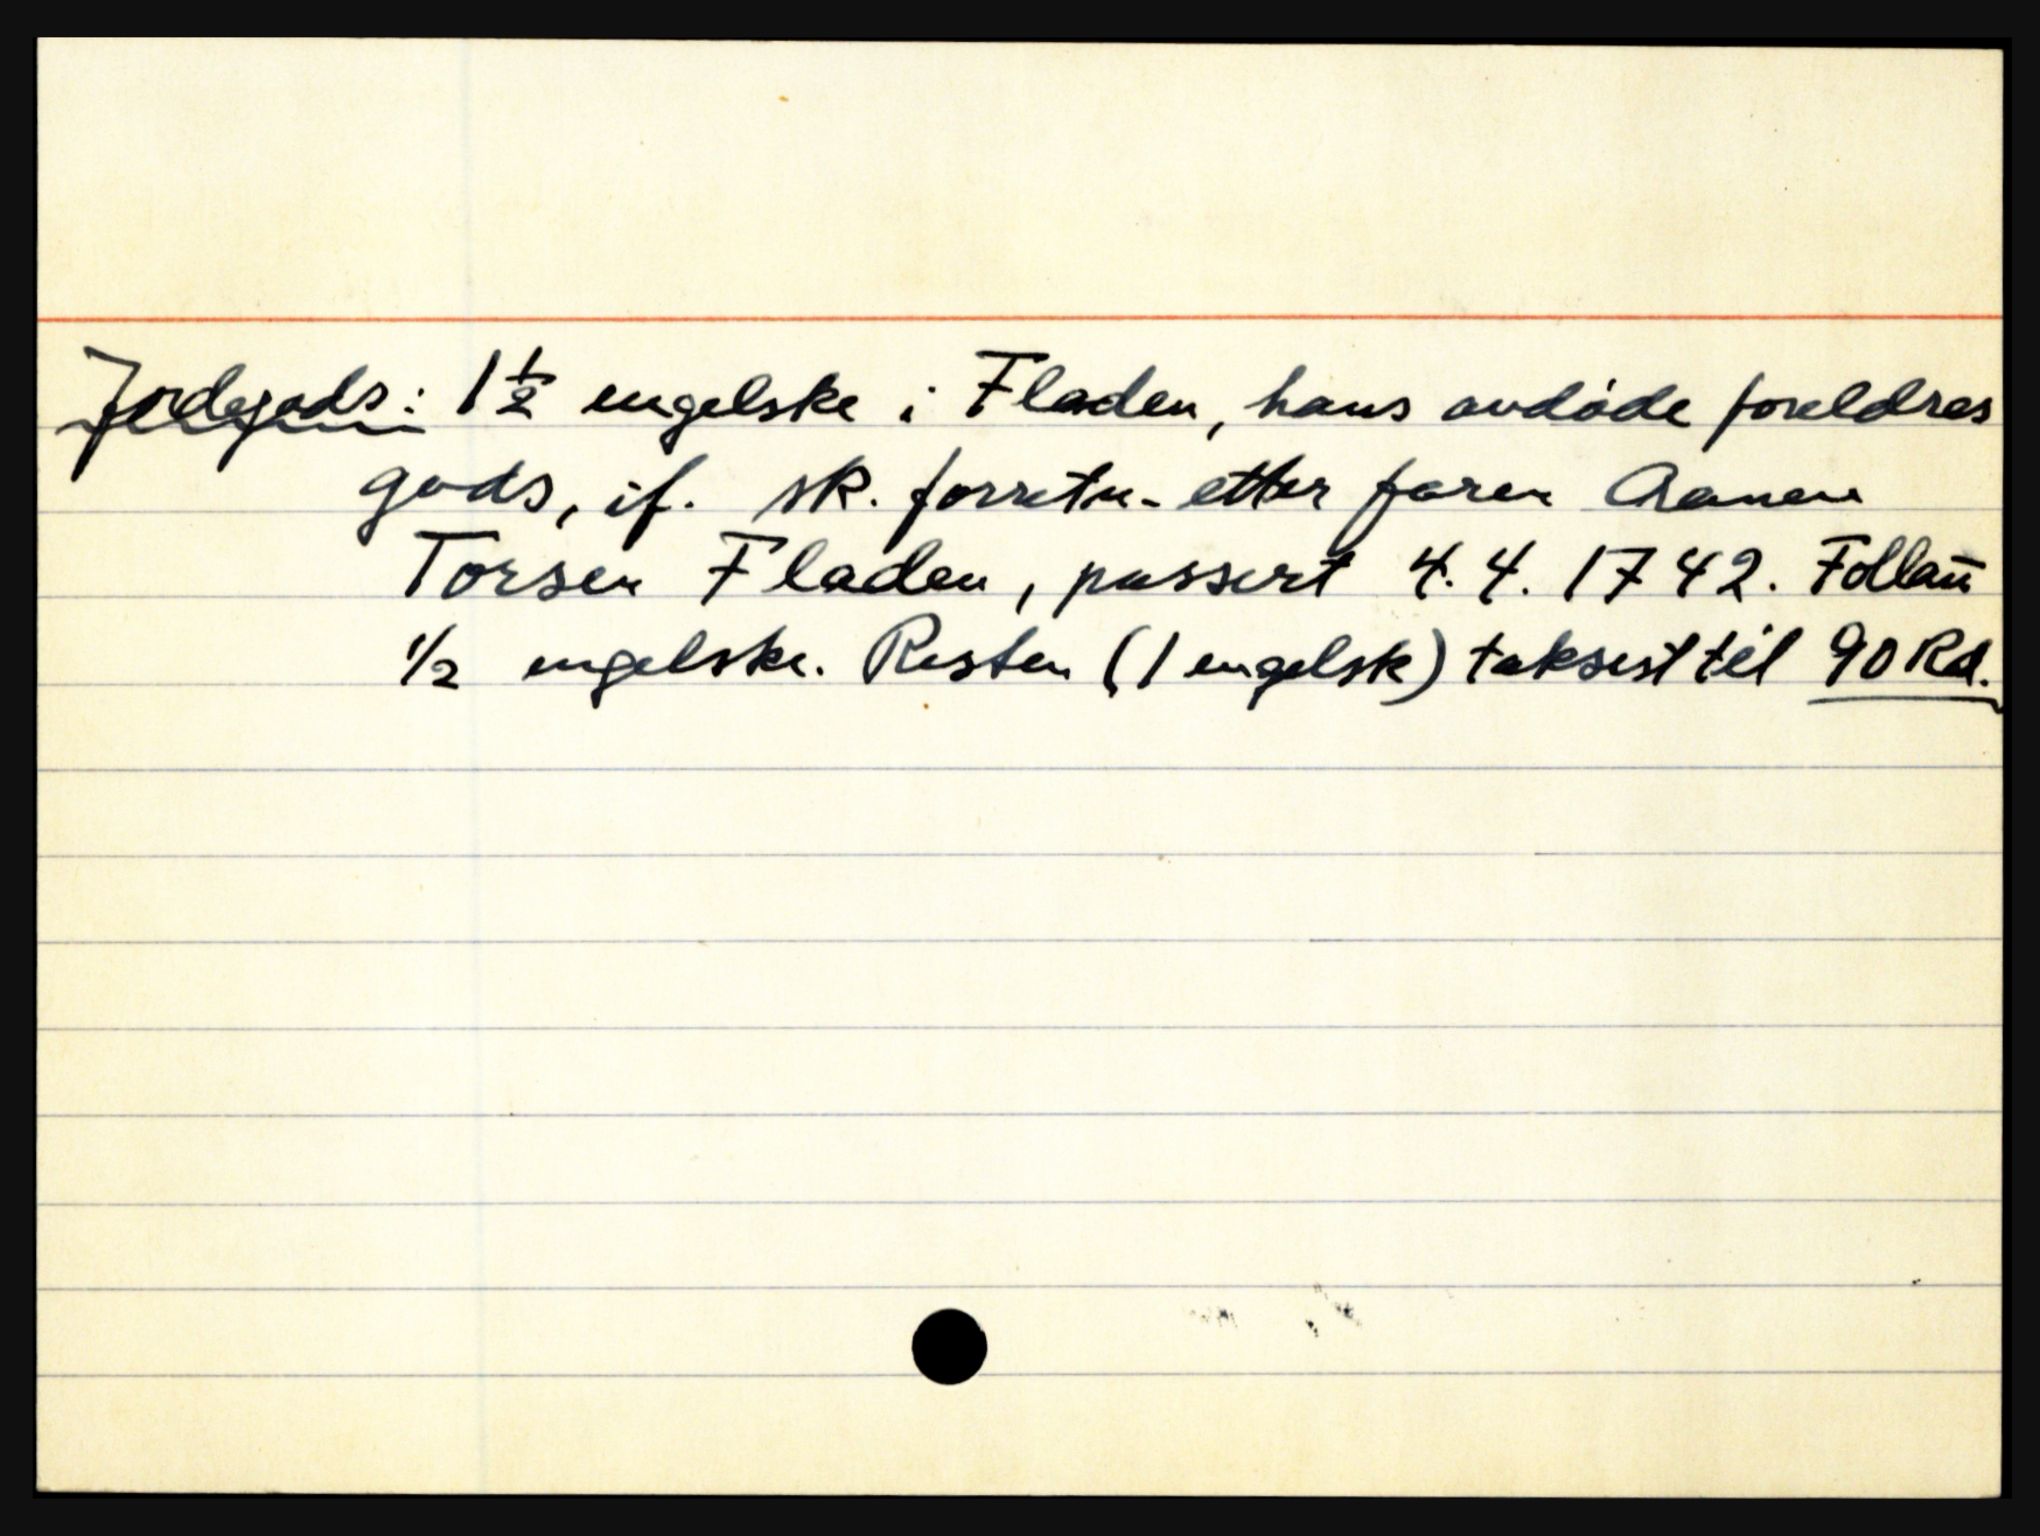 Jordegods: 1 1/2 engelske i Fladen, hans avdøde foreldres
gods, if. sk. forretn. etter faren Aanen
Torsen Fladen, passert 4.4.1742. Follaun
1/2 engelske. Resten (1 engelsk) taksert til 90 Rd.